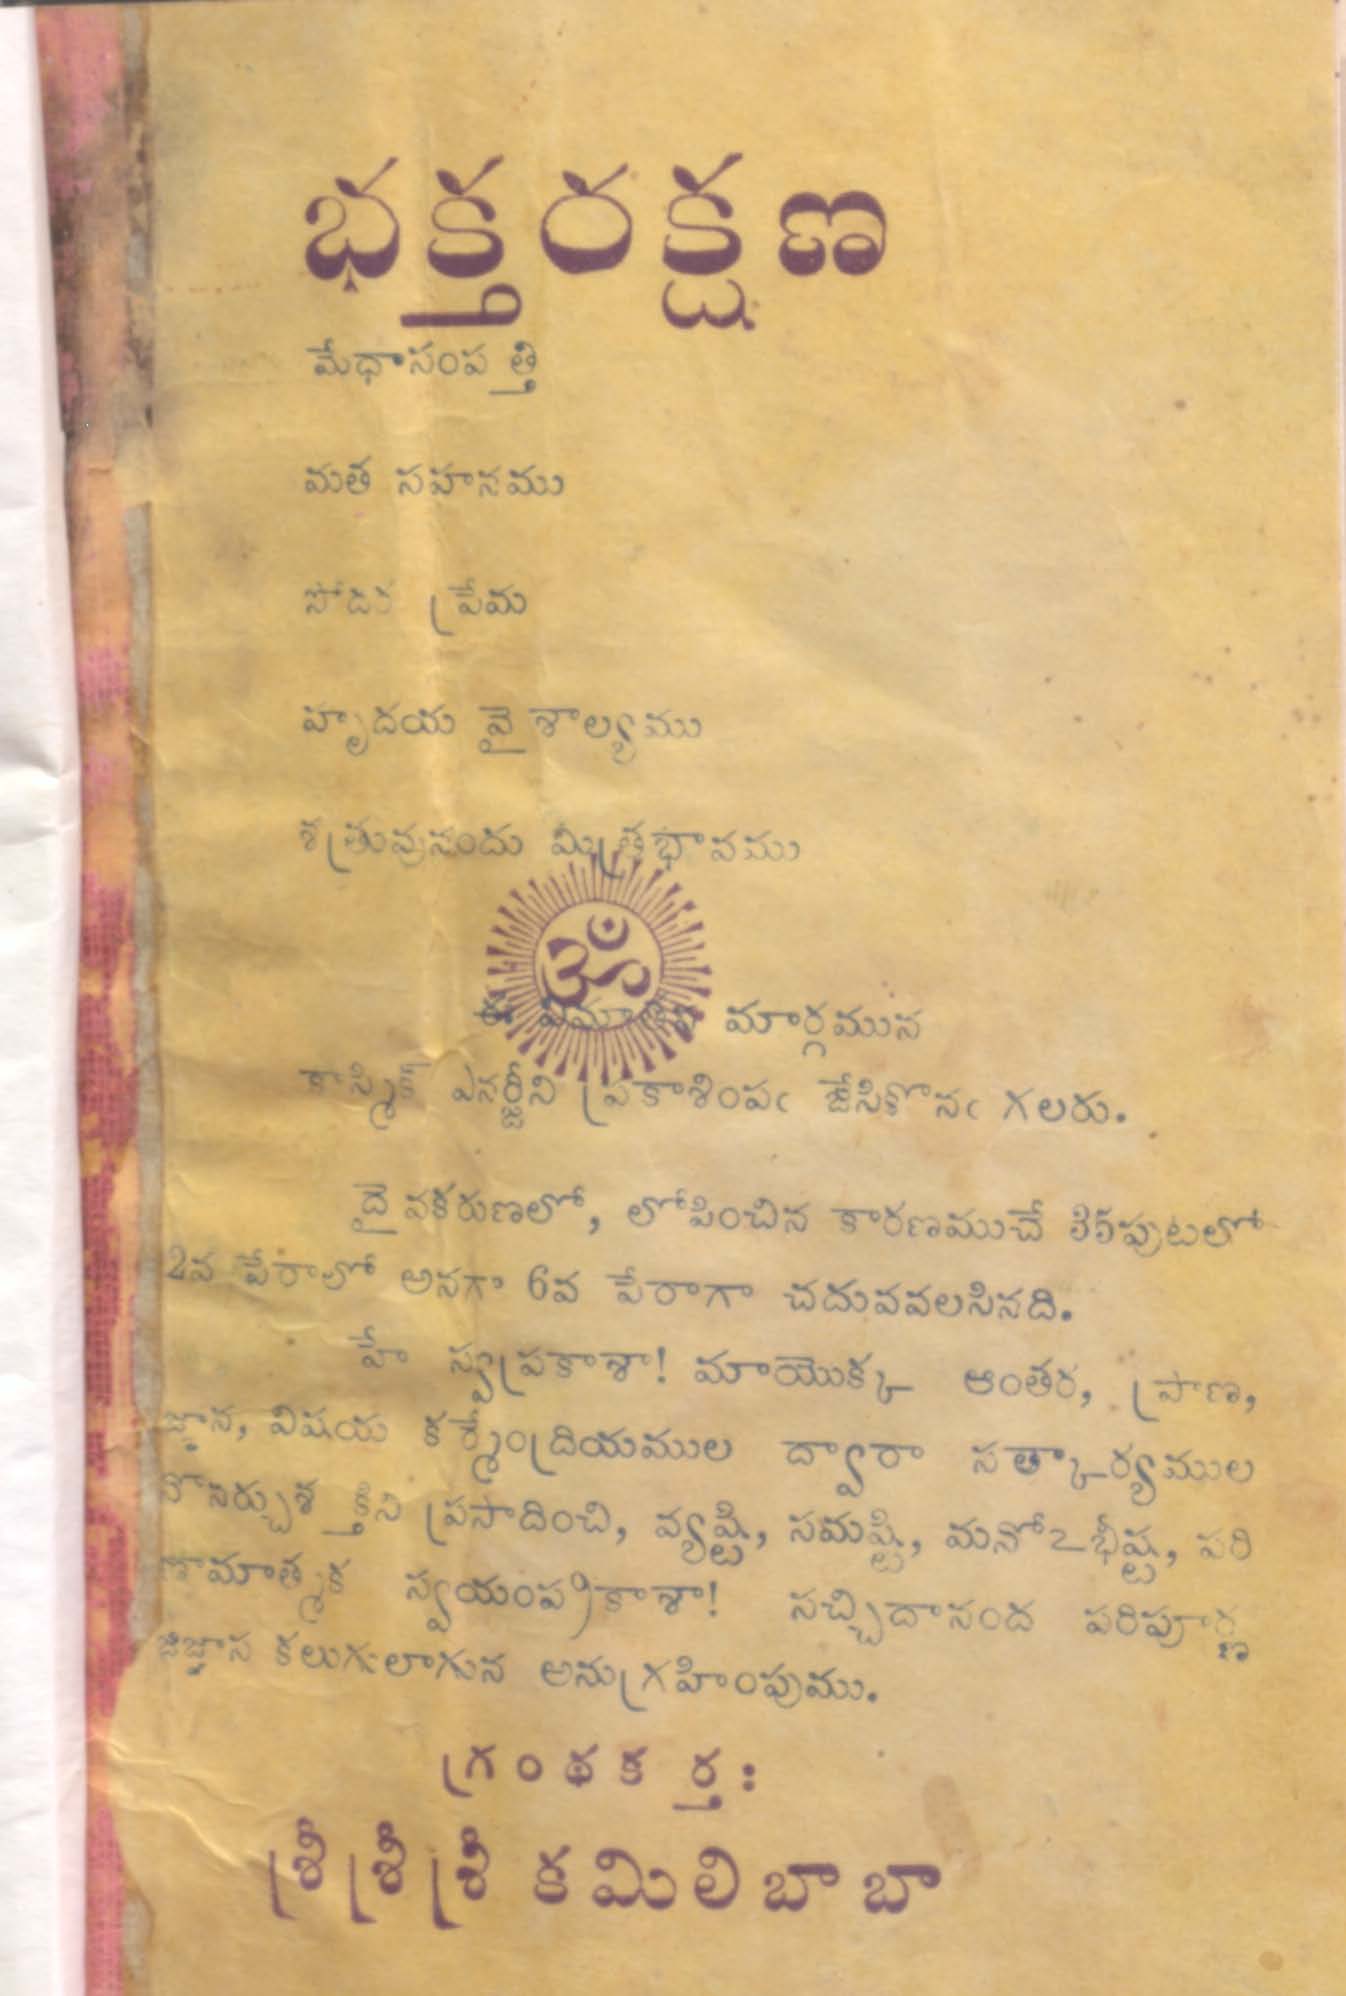 భక్తరక్షణ
మేధాసంపత్తి
మత సహనము
సోదర ప్రేమ
హృదయ వైశాల్యము
శత్రువునందు మిత్రభావము
ఓం
ఈ మార్గమున
కాస్మిక్ ఎనర్జీని ప్రకాశింపఁ జేసికొనఁ గలరు.
దైనకరుణలో, లోపించిన కారణముచే 35పుటలో
2వ పేరాలో అనగా 6వ పేరాగా చదువవలసినది.
హే స్వప్రకాశా! మాయొక్క ఆంతర, ప్రాణ,
జ్ఞాన, విషయ కర్మేంద్రియముల ద్వారా సత్కార్యముల
నొనర్చుశక్తిని ప్రసాదించి, వ్యష్టి, సమష్టి, మనోఽభీష్ట, పరి
ణామాత్మక స్వయంప్రకాశా! సచ్చిదానంద పరిపూర్ణ
జిజ్ఞాస కలుగులాగున అనుగ్రహింపుము.
గ్రంథకర్త:
శ్రీశ్రీశ్రీ కమిలిబాబా